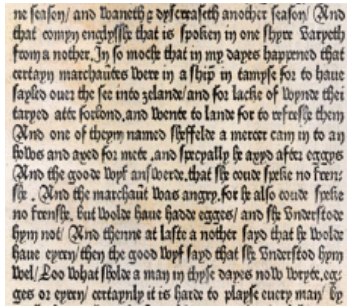 ne season/ and waneth & dyscreaseth another season/ And
that comyn englysshe that is spoken in one shyre varyeth
from a nother. In so moche that in my dayes happened that
certayn marchauntes were in a ship in tamyse for to haue
sayled ouer the see into zelande/ and for lacke of wynde thei
taryed atte forlond, and wente to lande for to refreshe them
And one of theym named sheffelde a mercer cam in to an
hows and axed for mete, and specyally he axyd after eggys
And the goode wyf answerde, that she coude speke no fren-
she. And the marchaut was angry, for he also coude speke
no frenshe, but wolde haue hadde egges/ and she vnderstode
hym not/ And thenne at laste a nother sayd that he wolde
haue eyren/ then the good wyf sayd that she vnderstod hym
wel/ Loo what sholde a man in thyse dayes now wryte, eg-
ges or eyren/ certaynly it is harde to playse euery man/ by